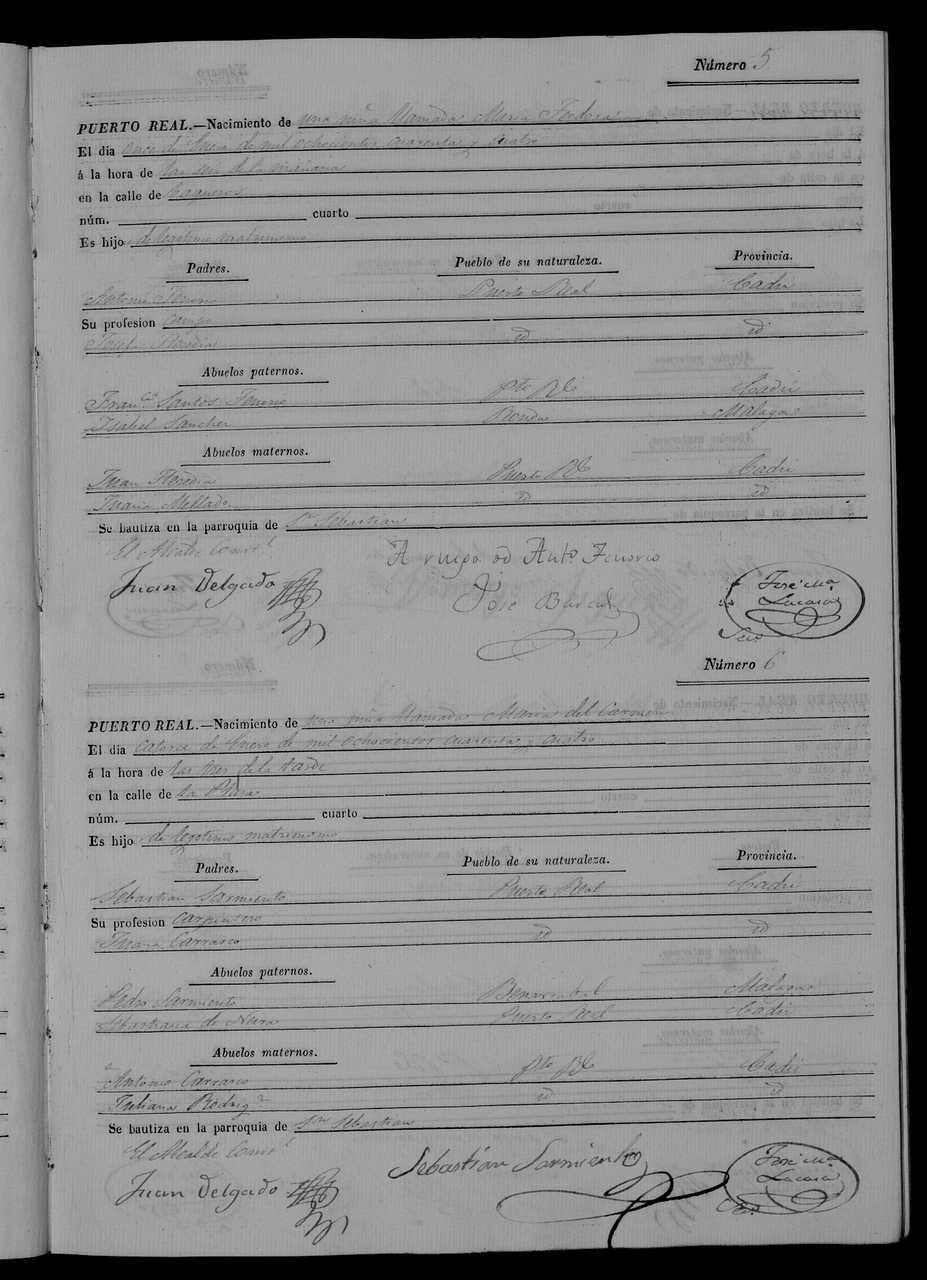 Número 5
PUERTO REAL.—Nacimiento de una niña llamada Maria
El dia once de Enero de mil ochocientos cuarenta y cuatro
á la hora de las seis de la mañana
en la calle de Vaqueros
núm. cuarto
Es hijo de legitimo matrimonio
Padres. Pueblo de su naturaleza. Provincia.
Antonio Tenorio Puerto Real Cadiz
Su profesion Campo
Josefa Heredia id id
Abuelos paternos.
Franco. Santos Tenorio Pto Rl Cadiz
Isabel Sanchez Ronda Malaga
Abuelos maternos.
Juan Heredia Puerto Rl Cadiz
Maria Mellado id id
Se bautiza en la parroquia de Sn Sebastian
El Alcalde Constl.
A ruego de Anto. Tenorio
Juan Delgado
José
José Ma
Lacasa
Srio
Número 6
PUERTO REAL.—Nacimiento de una niña llamada Maria del Carmen
El dia catorce de Enero de mil ochocientos cuarenta y cuatro
á la hora de las tres de la tarde
en la calle de la Plaza
núm. cuarto
Es hijo de legitimo matrimonio
Padres. Pueblo de su naturaleza. Provincia.
Sebastian Sarmiento Puerto Real Cadiz
Su profesion Carpintero
Juana Carrasco id id
Abuelos paternos.
Pedro Sarmiento Malaga
Sebastiana de Neira Puerto Real Cadiz
Abuelos maternos.
Antonio Carrasco Pto Rl Cadiz
Juliana Rodrigz id id
Se bautiza en la parroquia de Sn Sebastian
El Alcalde Constl
Juan Delgado
Sebastian Sarmiento
José Ma
Lacasa
Srio.